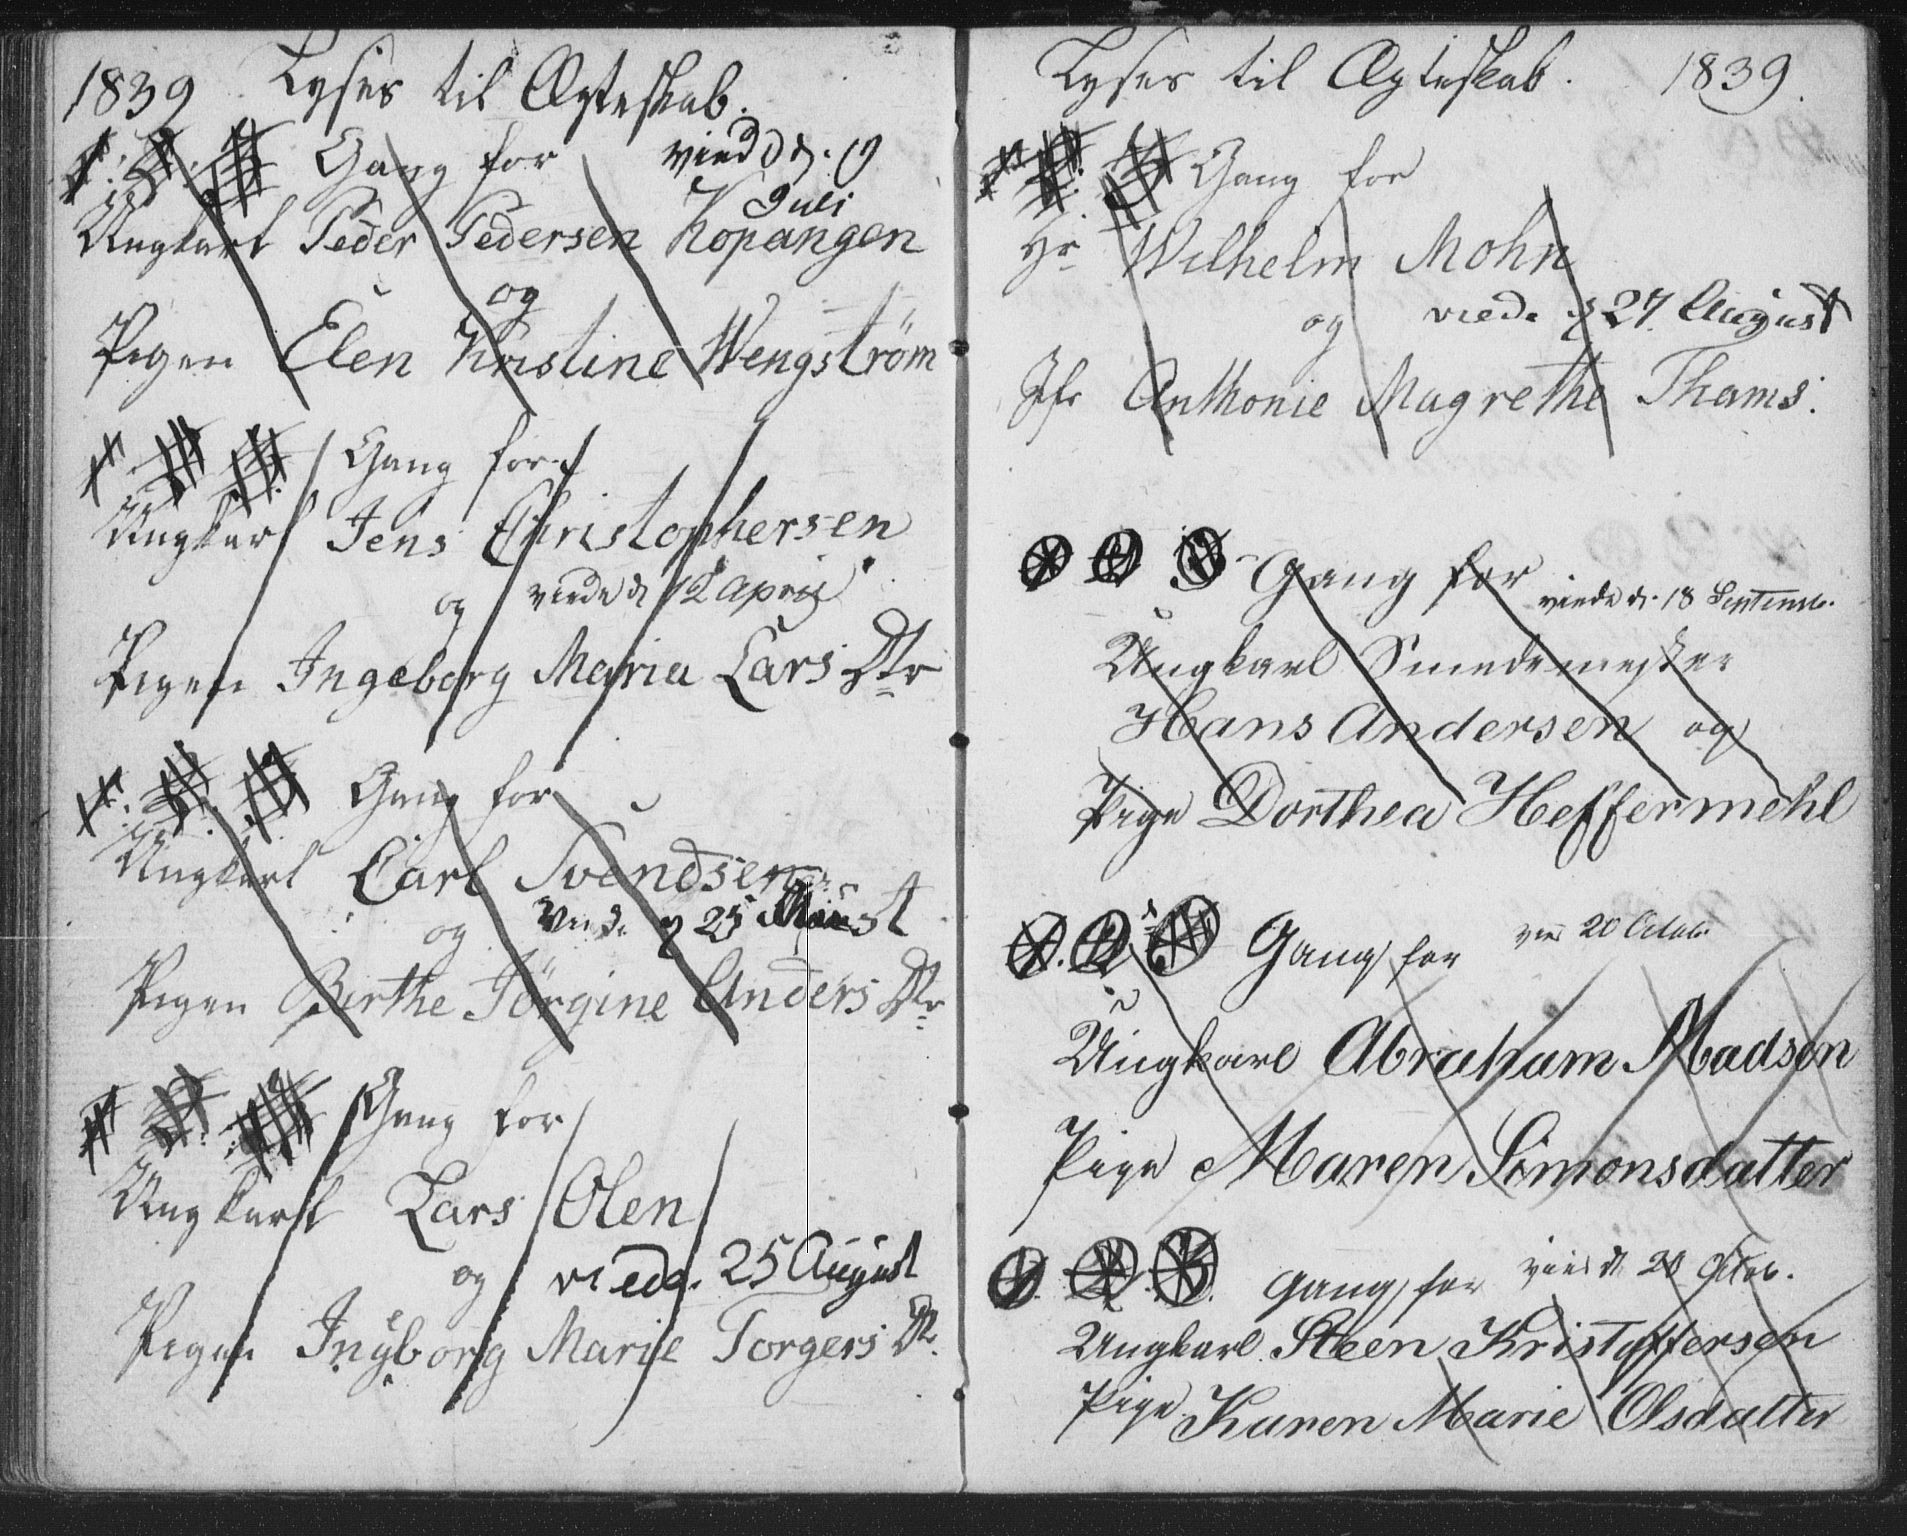 1839 Lyses til Ægteskab.
1. 2. 3 Gang for viede d. 19 Juli
Ungkarl Peder Pedersen Kopangen
og
Pigen Elen Kristine Wengström
1. 2. 3. Gang for
Ungkarl Jens Christophersen
og viede d 12 April
Pigen Ingeborg Maria Lars Dtr
1. 2. 3. Gang for
Ungkarl Carl Svendsen
og viede d 25
Pigen Birthe Jörgine Anders Dtr
1 2. 3. Gang for
Ungkarl Lars Olen
og viede. 25 August
Pigen Ingborg Marie Torgers Dt.
Lyses til Ægteskab. 1839.
1. 2. 3. Gang for
Hr Wilhelm Mohn
og viede d 27. August
Jfr Anthonie Magrethe Thams.
1 2 3 Gang for viede d. 18 Septemb.
Ungkarl Smedemester
Hans Andersen og
Pige Dorthea Heffermehl
1. 2. 3 Gang for vied 20 Octob.
Ungkarl Abraham Madsen
Pige Maren Simonsdatter
1. 2. 3. Gang for vied d. 20 Octob.
Ungkarl. Steen Kristoffersen
Pige Karen Marie Olsdatter